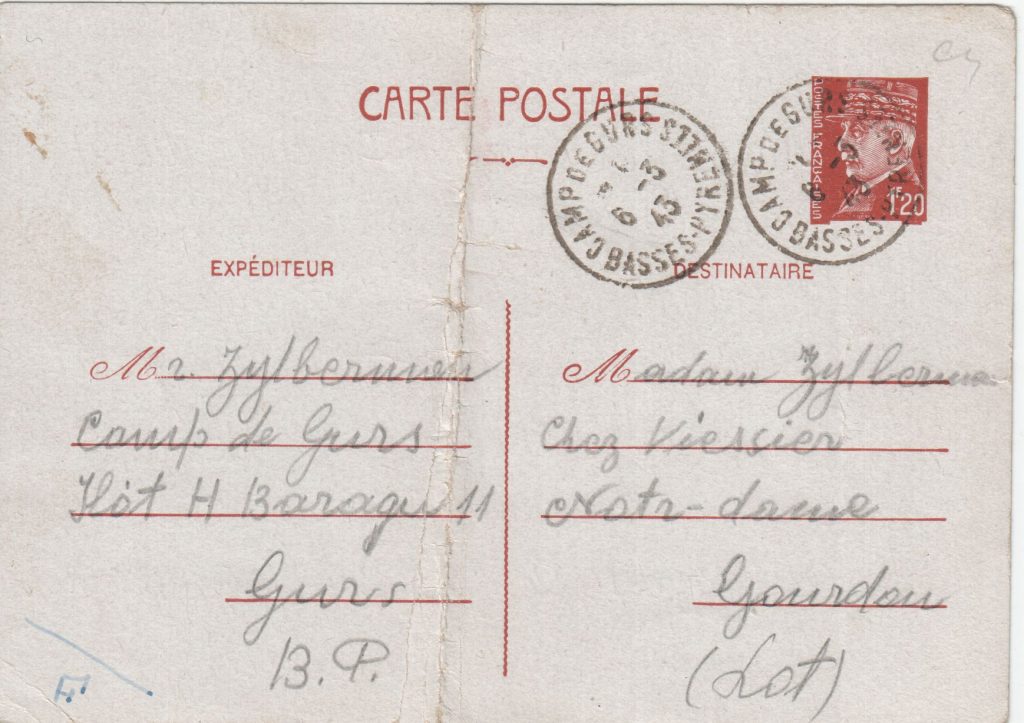 CARTE POSTALE
POSTES FRANÇAISES
1F20
CAMP DE GURS
6 -3 43
BASSES-PYRENEES
CAMP DE GURS
6 -3 43
BASSES-PYRENEES
EXPÉDITEUR
Mr. Zylberman
Camp de Gurs
Ilôt H Baraqu 11
Gurs
B.P.
DESTINATAIRE
Madam Zylberman
Chez Viescier
Notr-dame
Gourdon
(Lot)